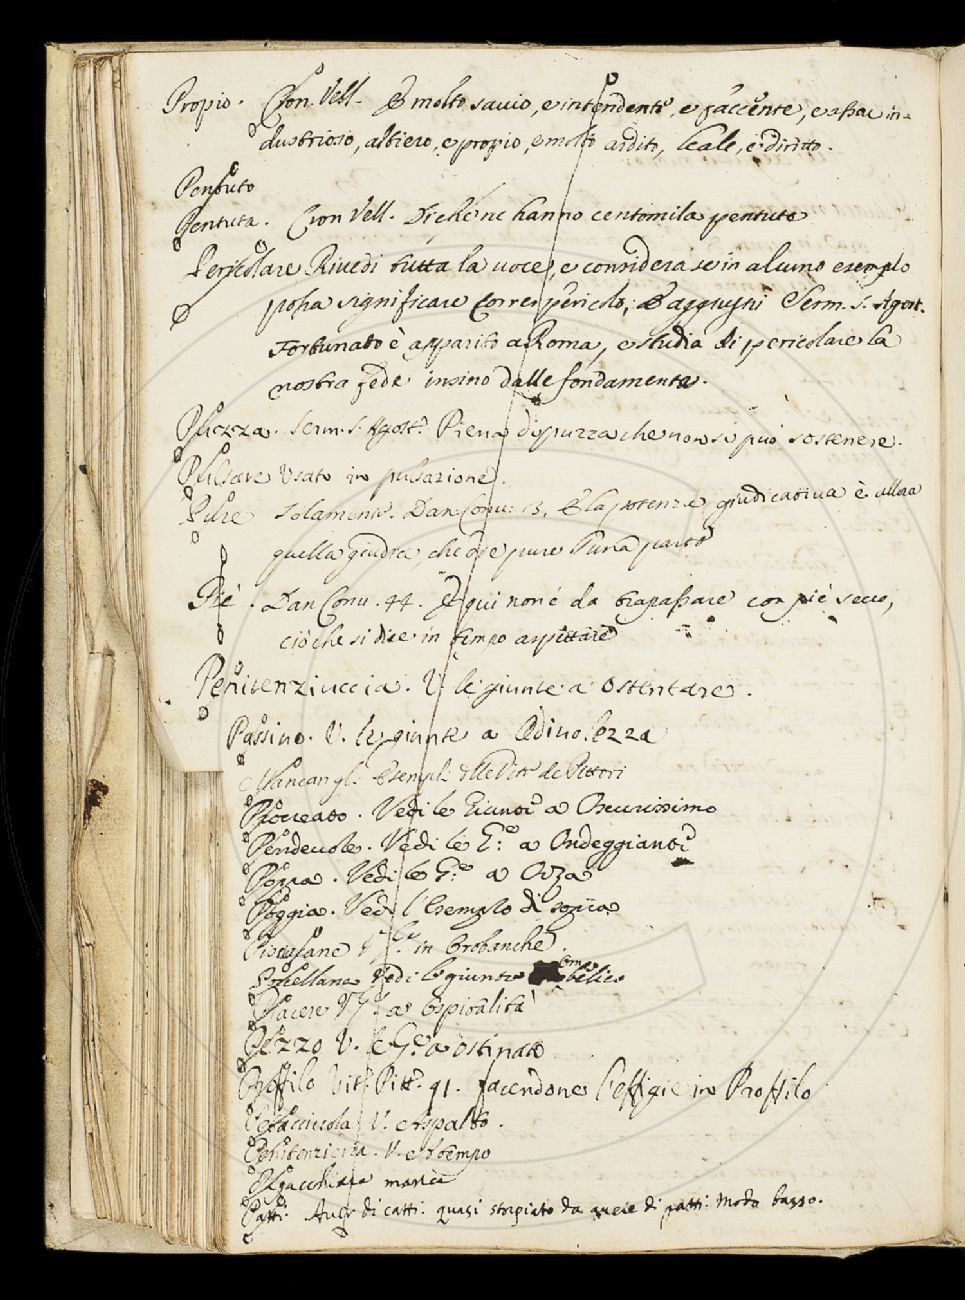 Propio. Cron. Vell. E molto savio, e intendente, e faccente, e assai in-
dustrioso, altiero, e propio, e molto ardito, leale, e diritto.
Pentuto
Pentuta. Cron Vell. Di che ne hanno centomila pentute
Pericolare Rivedi tutta la voce, e considera se in alcuno esemplo
possa significare Correr pericolo; E aggiugni Serm. S. Agost.
Fortunato è apparito a Roma, e studia di pericolare la
nostra fede insino dalle fondamenta.
Puzza. Serm. S. Agost. Piena di puzza che non si può sostenere.
Pulsare Usato in pulsazione.
Pure Solamente. Dan Conv: 13. E la potenzia giudicativa è allora
quella giudica, che ode pure l'una parte
Piè. Dan Conv. 44. E qui non è da trapassare con piè secco,
ciò che si dice in tempo aspettare
Penitenziuccia. V. le giunte a Ostentare.
Passino. V. le giunte a
Mancan gl. Esempli delle Vite de Pittori
Vedi le Giunte a Oscurissimo
Pendevole. Vedi le G.e a Ondeggiante
Vedi le G.e a Orza
Poggia. Vedi l'Esemplo di sopra
in Orobanche.
Vedi le giunte
Piacere a Ospitalità
Pezzo V. le G.e a Ostinato
Proffilo Vit. Pitt. 91. facendone l'effigie in Proffilo
V. Aspalto.
V. Attempo
manca
Patti. Aver di catti. quasi storpiato da avere di patti. Modo basso.